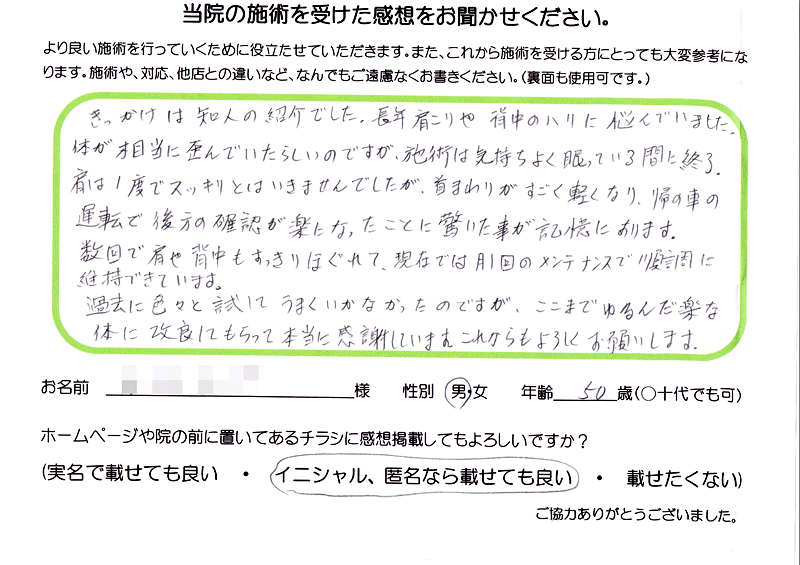 当院の施術を受けた感想をお聞かせください。
より良い施術を行っていくために役立たせていただきます。また、これから施術を受ける方にとっても大変参考にな
ります。施術や、対応、他店との違いなど、なんでもご遠慮なくお書きください。(裏面も使用可です。)
きっかけは知人の紹介でした。長年肩こりや背中のハリに悩んでいました。
体が相当に歪んでいたらしいのですが、施術は気持ちよく眠っている間に終了。
肩は1度でスッキリとはいきませんでしたが、首まわりがすごく軽くなり、帰の車の
運転で後方の確認が楽になったことに驚いた事が記憶にあります。
数回で肩や背中もすっきりほぐれて、現在では月1回のメンテナンスで順調に
維持できています。
過去に色々と試してうまくいかなかったのですが、ここまでゆるんだ楽な
体に改良してもらって本当に感謝しています。これからもよろしくお願いします。
お名前 様 性別 男・女 年齢 50 歳(〇十代でも可)
ホームページや院の前に置いてあるチラシに感想掲載してもよろしいですか?
(実名で載せても良い ・ イニシャル、匿名なら載せても良い ・ 載せたくない)
ご協力ありがとうございました。